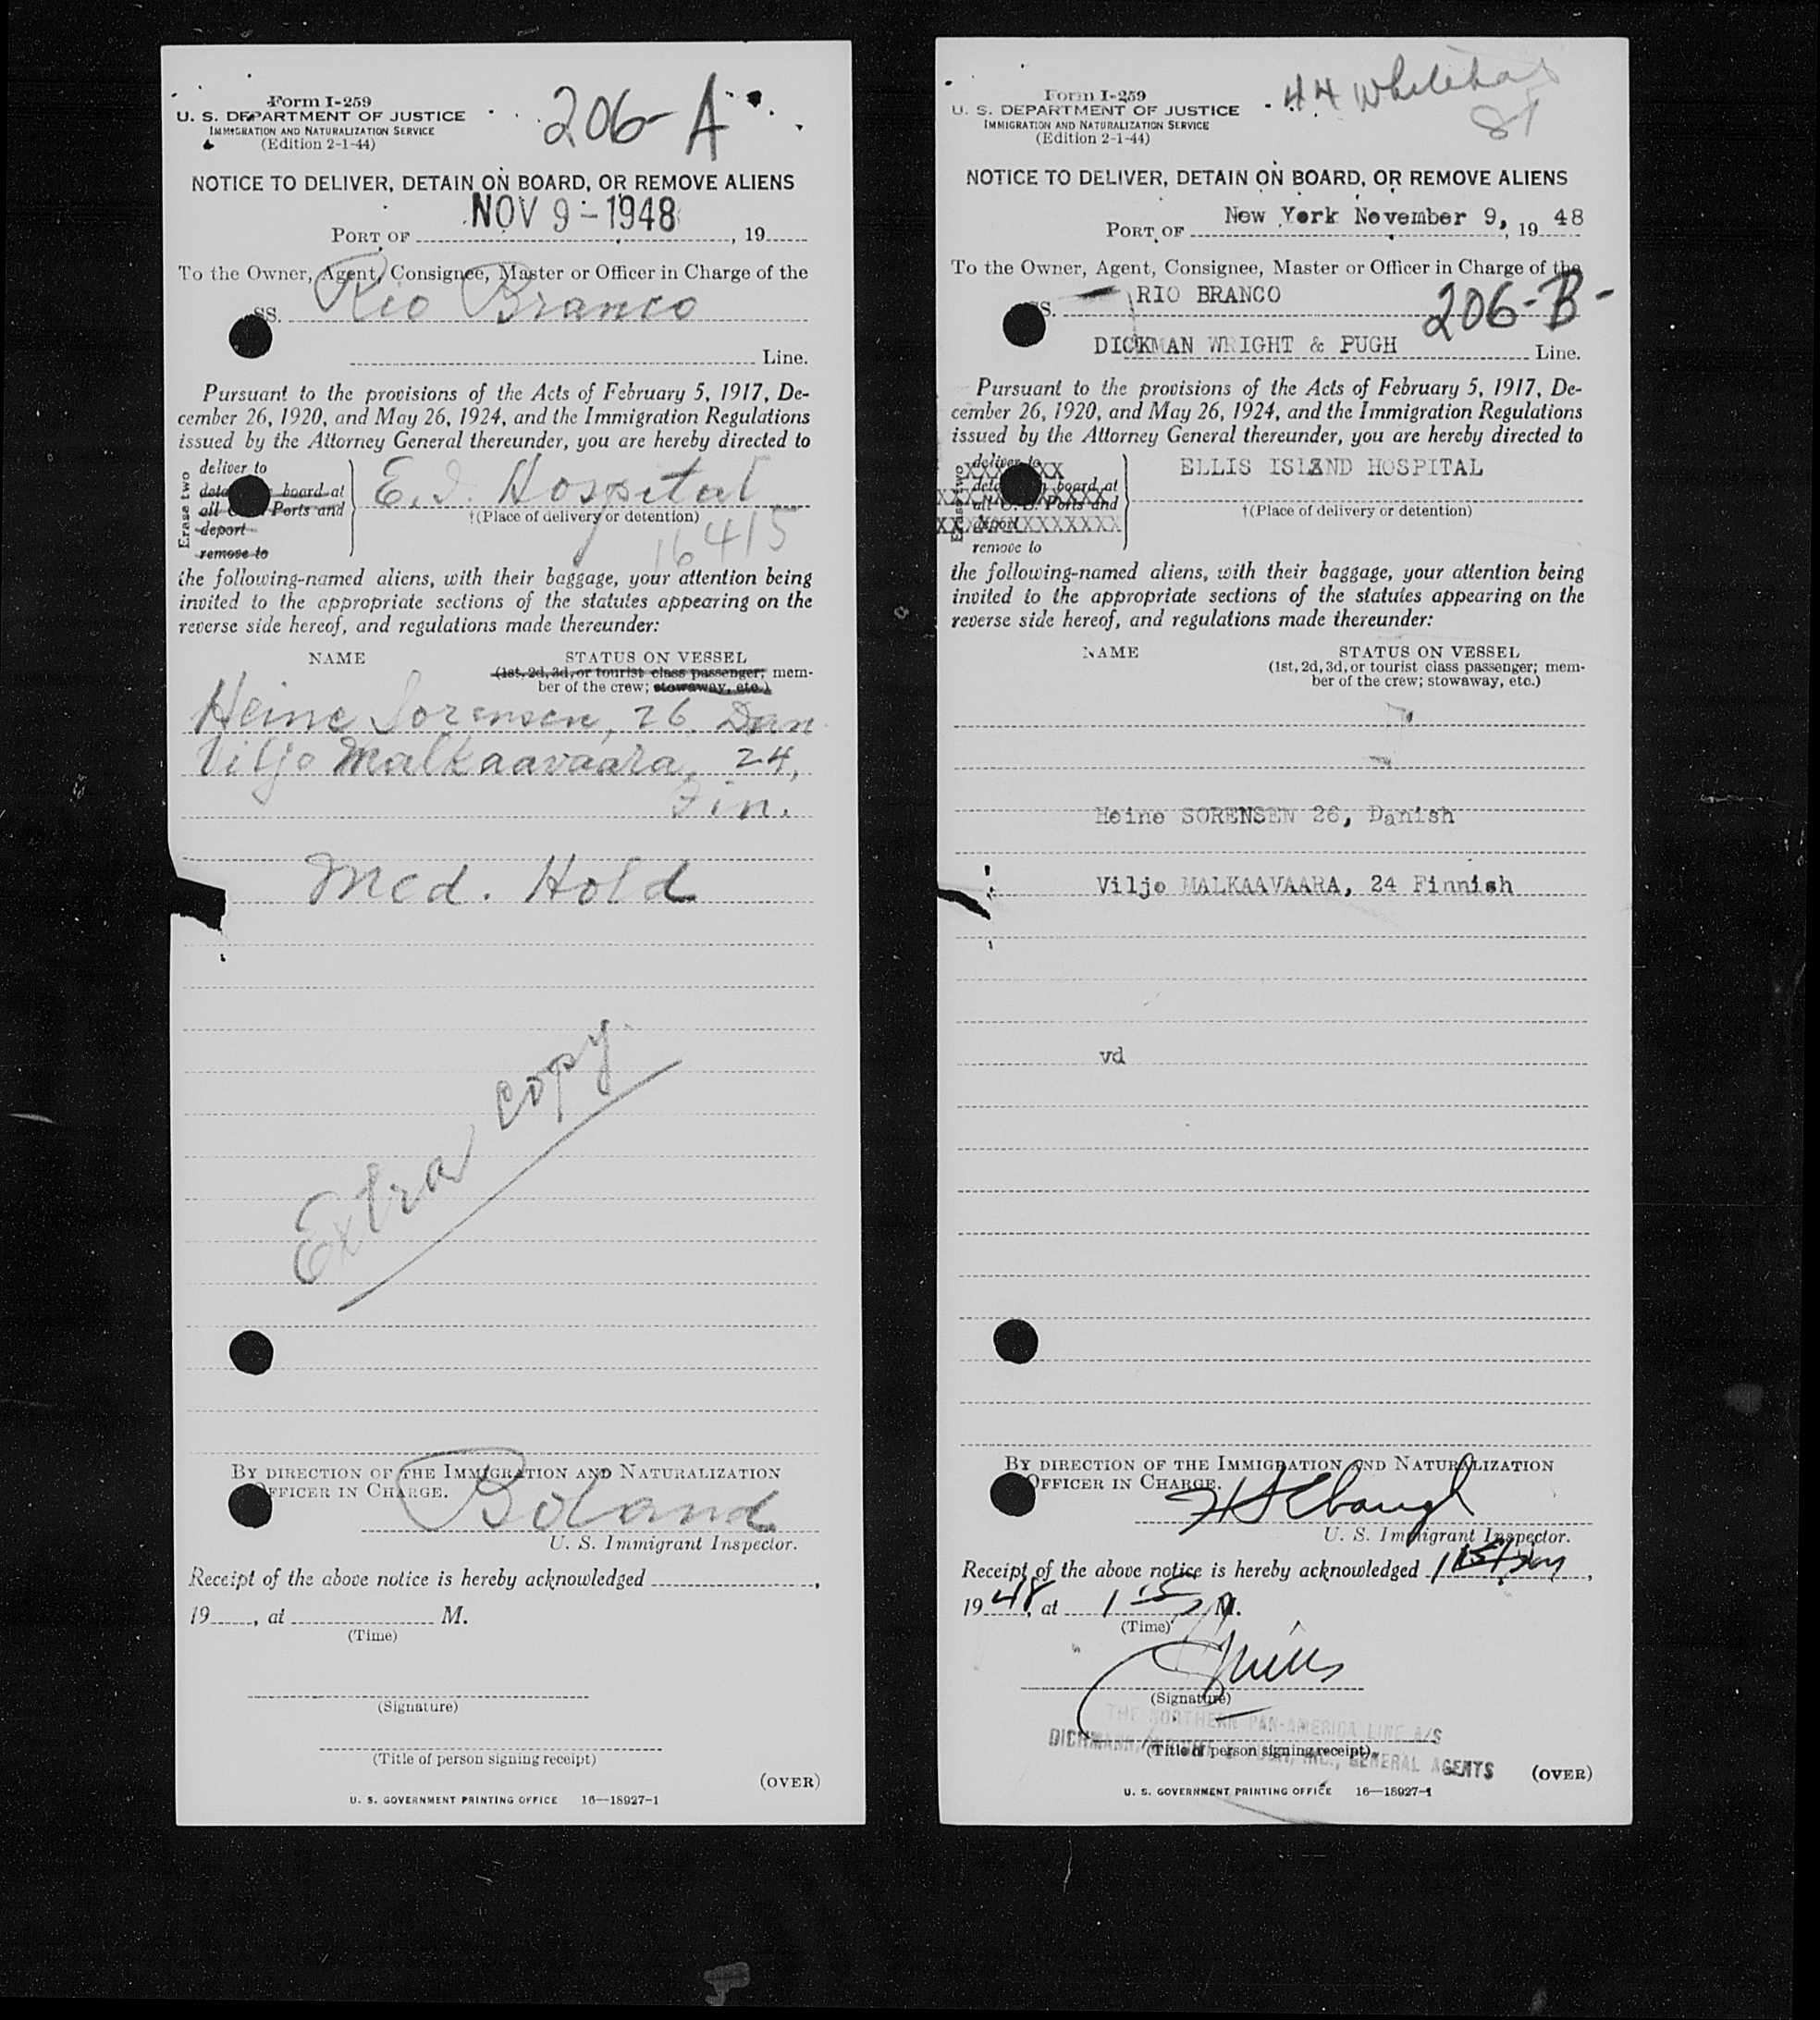 Form I-259
U. S. DEPARTMENT OF JUSTICE
IMMIGRATION AND NATURALIZATION SERVICE
(Edition 2-1-44)
206-A
NOTICE TO DELIVER, DETAIN ON BOARD, OR REMOVE ALIENS
NOV 9-1948
PORT OF , 19
To the Owner, Agent, Consignee, Master or Officer in Charge of the
SS. Rio Branco
Line.
Pursuant to the provisions of the Acts of February 5, 1917, De-
cember 26, 1920, and May 26, 1924, and the Immigration Regulations
issued by the Attorney General thereunder, you are hereby directed to
Erase two
deliver to
board at
all Ports and
deport
remove to
E. I. Hospital
†(Place of delivery or detention)
16415
the following-named aliens, with their baggage, your attention being
invited to the appropriate sections of the statutes appearing on the
reverse side hereof, and regulations made thereunder:
NAME STATUS ON VESSEL
(1st, 2d, 3d, or tourist class passenger; mem-
ber of the crew; stowaway, etc.)
Heine Sorensen, 26, Dan
Viljo Malkaavaara, 24,
Fin.
Med. Hold
Extra copy
BY DIRECTION OF THE IMMIGRATION AND NATURALIZATION
OFFICER IN CHARGE.
Boland
U. S. Immigrant Inspector.
Receipt of the above notice is hereby acknowledged ,
19 , at M.
(Time)
(Signature)
(Title of person signing receipt)
(OVER)
U. S. GOVERNMENT PRINTING OFFICE 16—18927-1
Form I-259
U. S. DEPARTMENT OF JUSTICE
IMMIGRATION AND NATURALIZATION SERVICE
(Edition 2-1-44)
44 Whitehall
St
NOTICE TO DELIVER, DETAIN ON BOARD, OR REMOVE ALIENS
PORT OF New York November 9, 19 48
To the Owner, Agent, Consignee, Master or Officer in Charge of the
SS. RIO BRANCO
206-B-
DICKMAN WRIGHT & PUGH Line.
Pursuant to the provisions of the Acts of February 5, 1917, De-
cember 26, 1920, and May 26, 1924, and the Immigration Regulations
issued by the Attorney General thereunder, you are hereby directed to
deliver to
board at
all U. S. Ports and
deport
remove to
ELLIS ISLAND HOSPITAL
†(Place of delivery or detention)
the following-named aliens, with their baggage, your attention being
invited to the appropriate sections of the statutes appearing on the
reverse side hereof, and regulations made thereunder:
NAME STATUS ON VESSEL
(1st, 2d, 3d, or tourist class passenger; mem-
ber of the crew; stowaway, etc.)
Heine SORENSEN 26, Danish
Viljo MALKAAVAARA, 24 Finnish
vd
BY DIRECTION OF THE IMMIGRATION AND NATURALIZATION
OFFICER IN CHARGE.
U. S. Immigrant Inspector.
Receipt of the above notice is hereby acknowledged ,
19 48, at M.
(Time)
(Signature)
THE NORTHERN PAN-AMERICA LINE A/S
GENERAL AGENTS
(Title of person signing receipt)
(OVER)
U. S. GOVERNMENT PRINTING OFFICE 16—18927-1